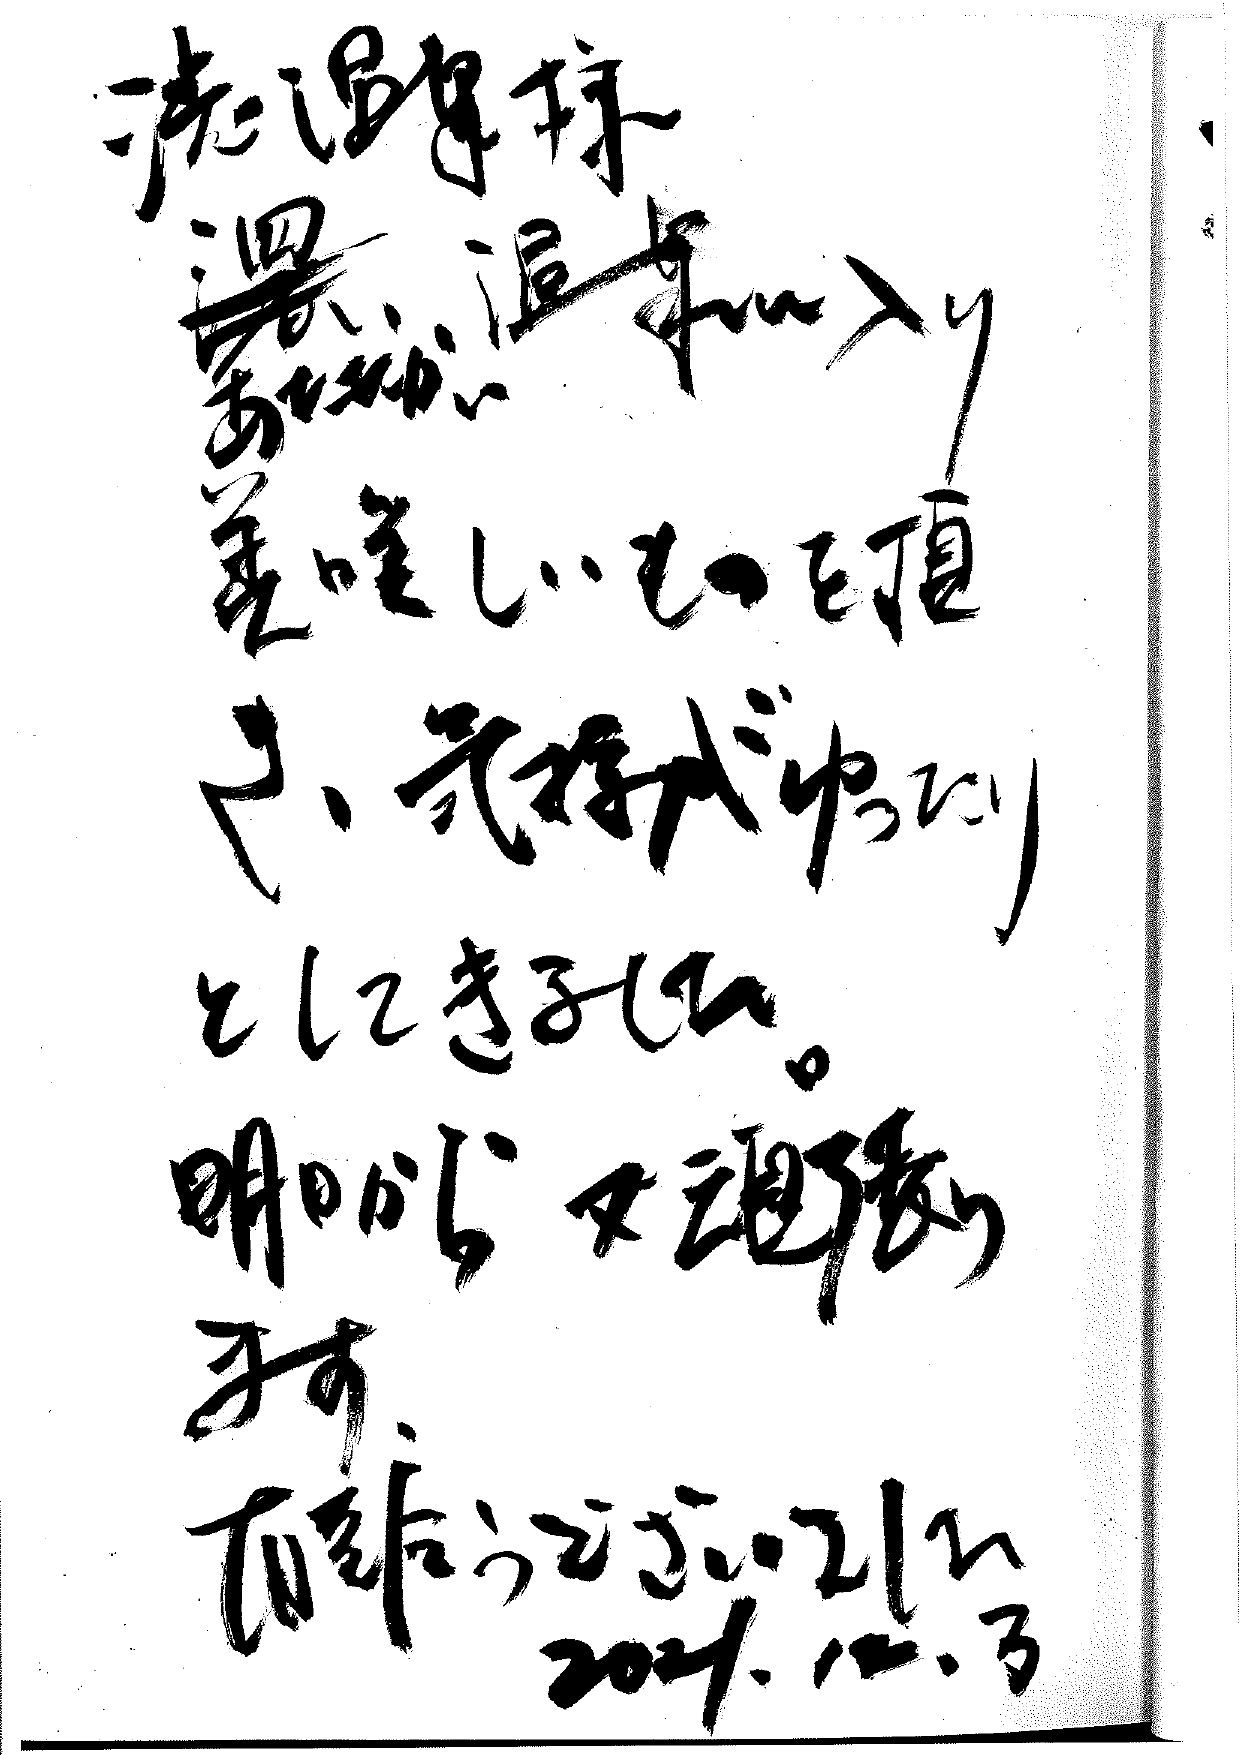 渋温泉様
温泉に入り
あたたかい
美味しいものを頂
き、気持がゆったり
としてきました。
明日から又頑張り
ます
有難うございました
2021.12.3